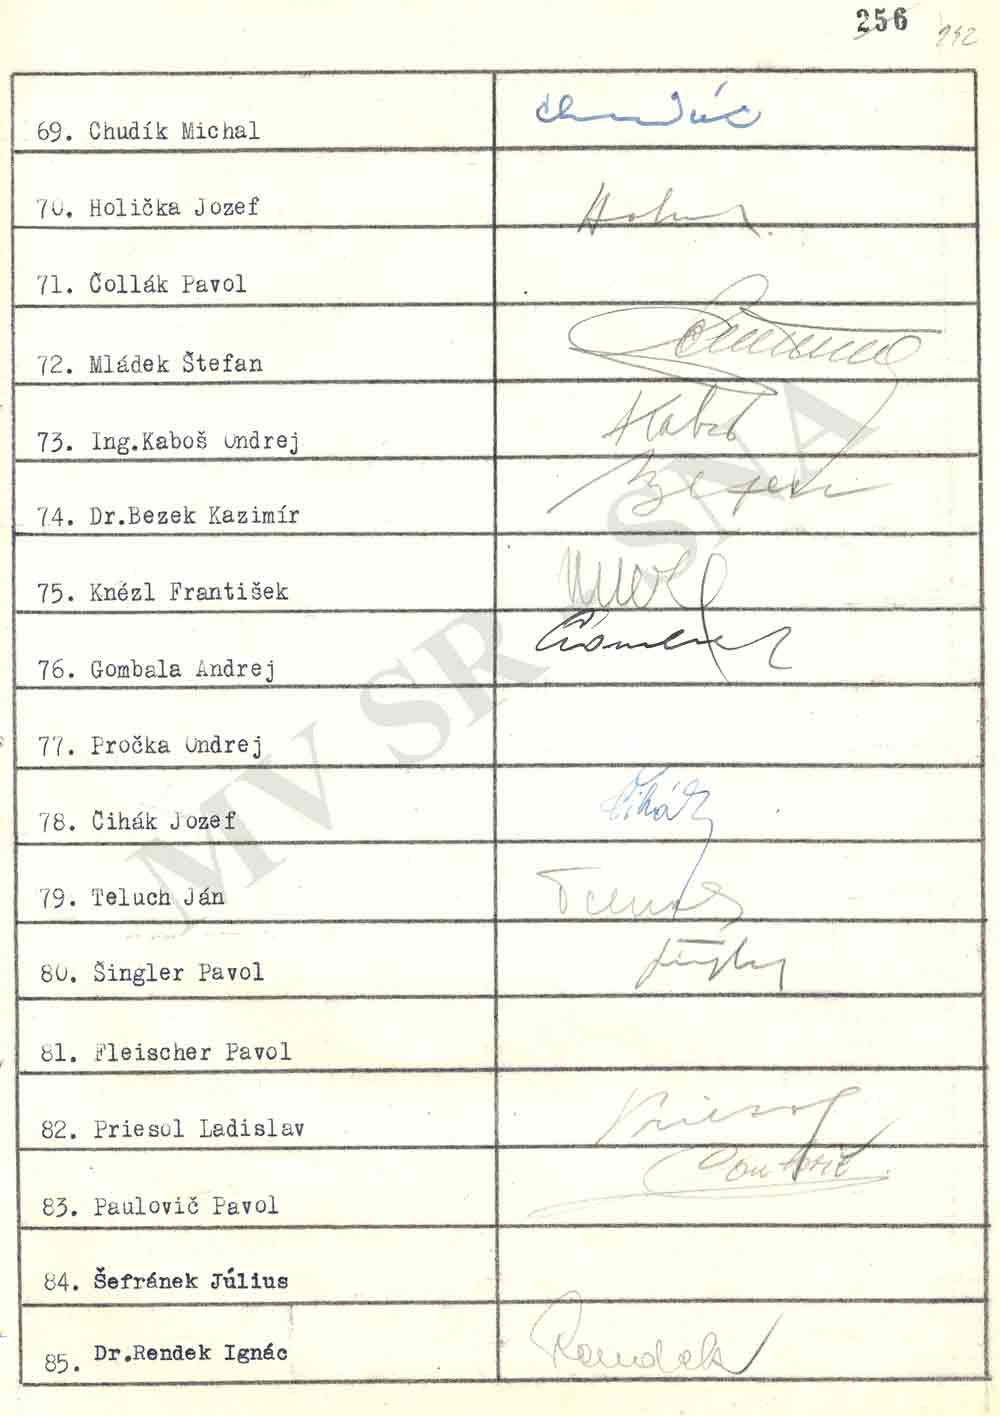 256
242
69. Chudík Michal
Chudík
70. Holička Jozef
71. Čollák Pavol
72. Mládek Štefan
73. Ing.Kaboš Ondrej
Kaboš
74. Dr.Bezek Kazimír
75. Knézl František
76. Gombala Andrej
77. Pročka Ondrej
78. Čihák Jozef
Čihák
79. Teluch Ján
80. Šingler Pavol
81. Fleischer Pavol
82. Priesol Ladislav
Priesol
83. Paulovič Pavol
Paulovič
84. Šefránek Július
85. Dr.Rendek Ignác
Rendek
MV SR SNA